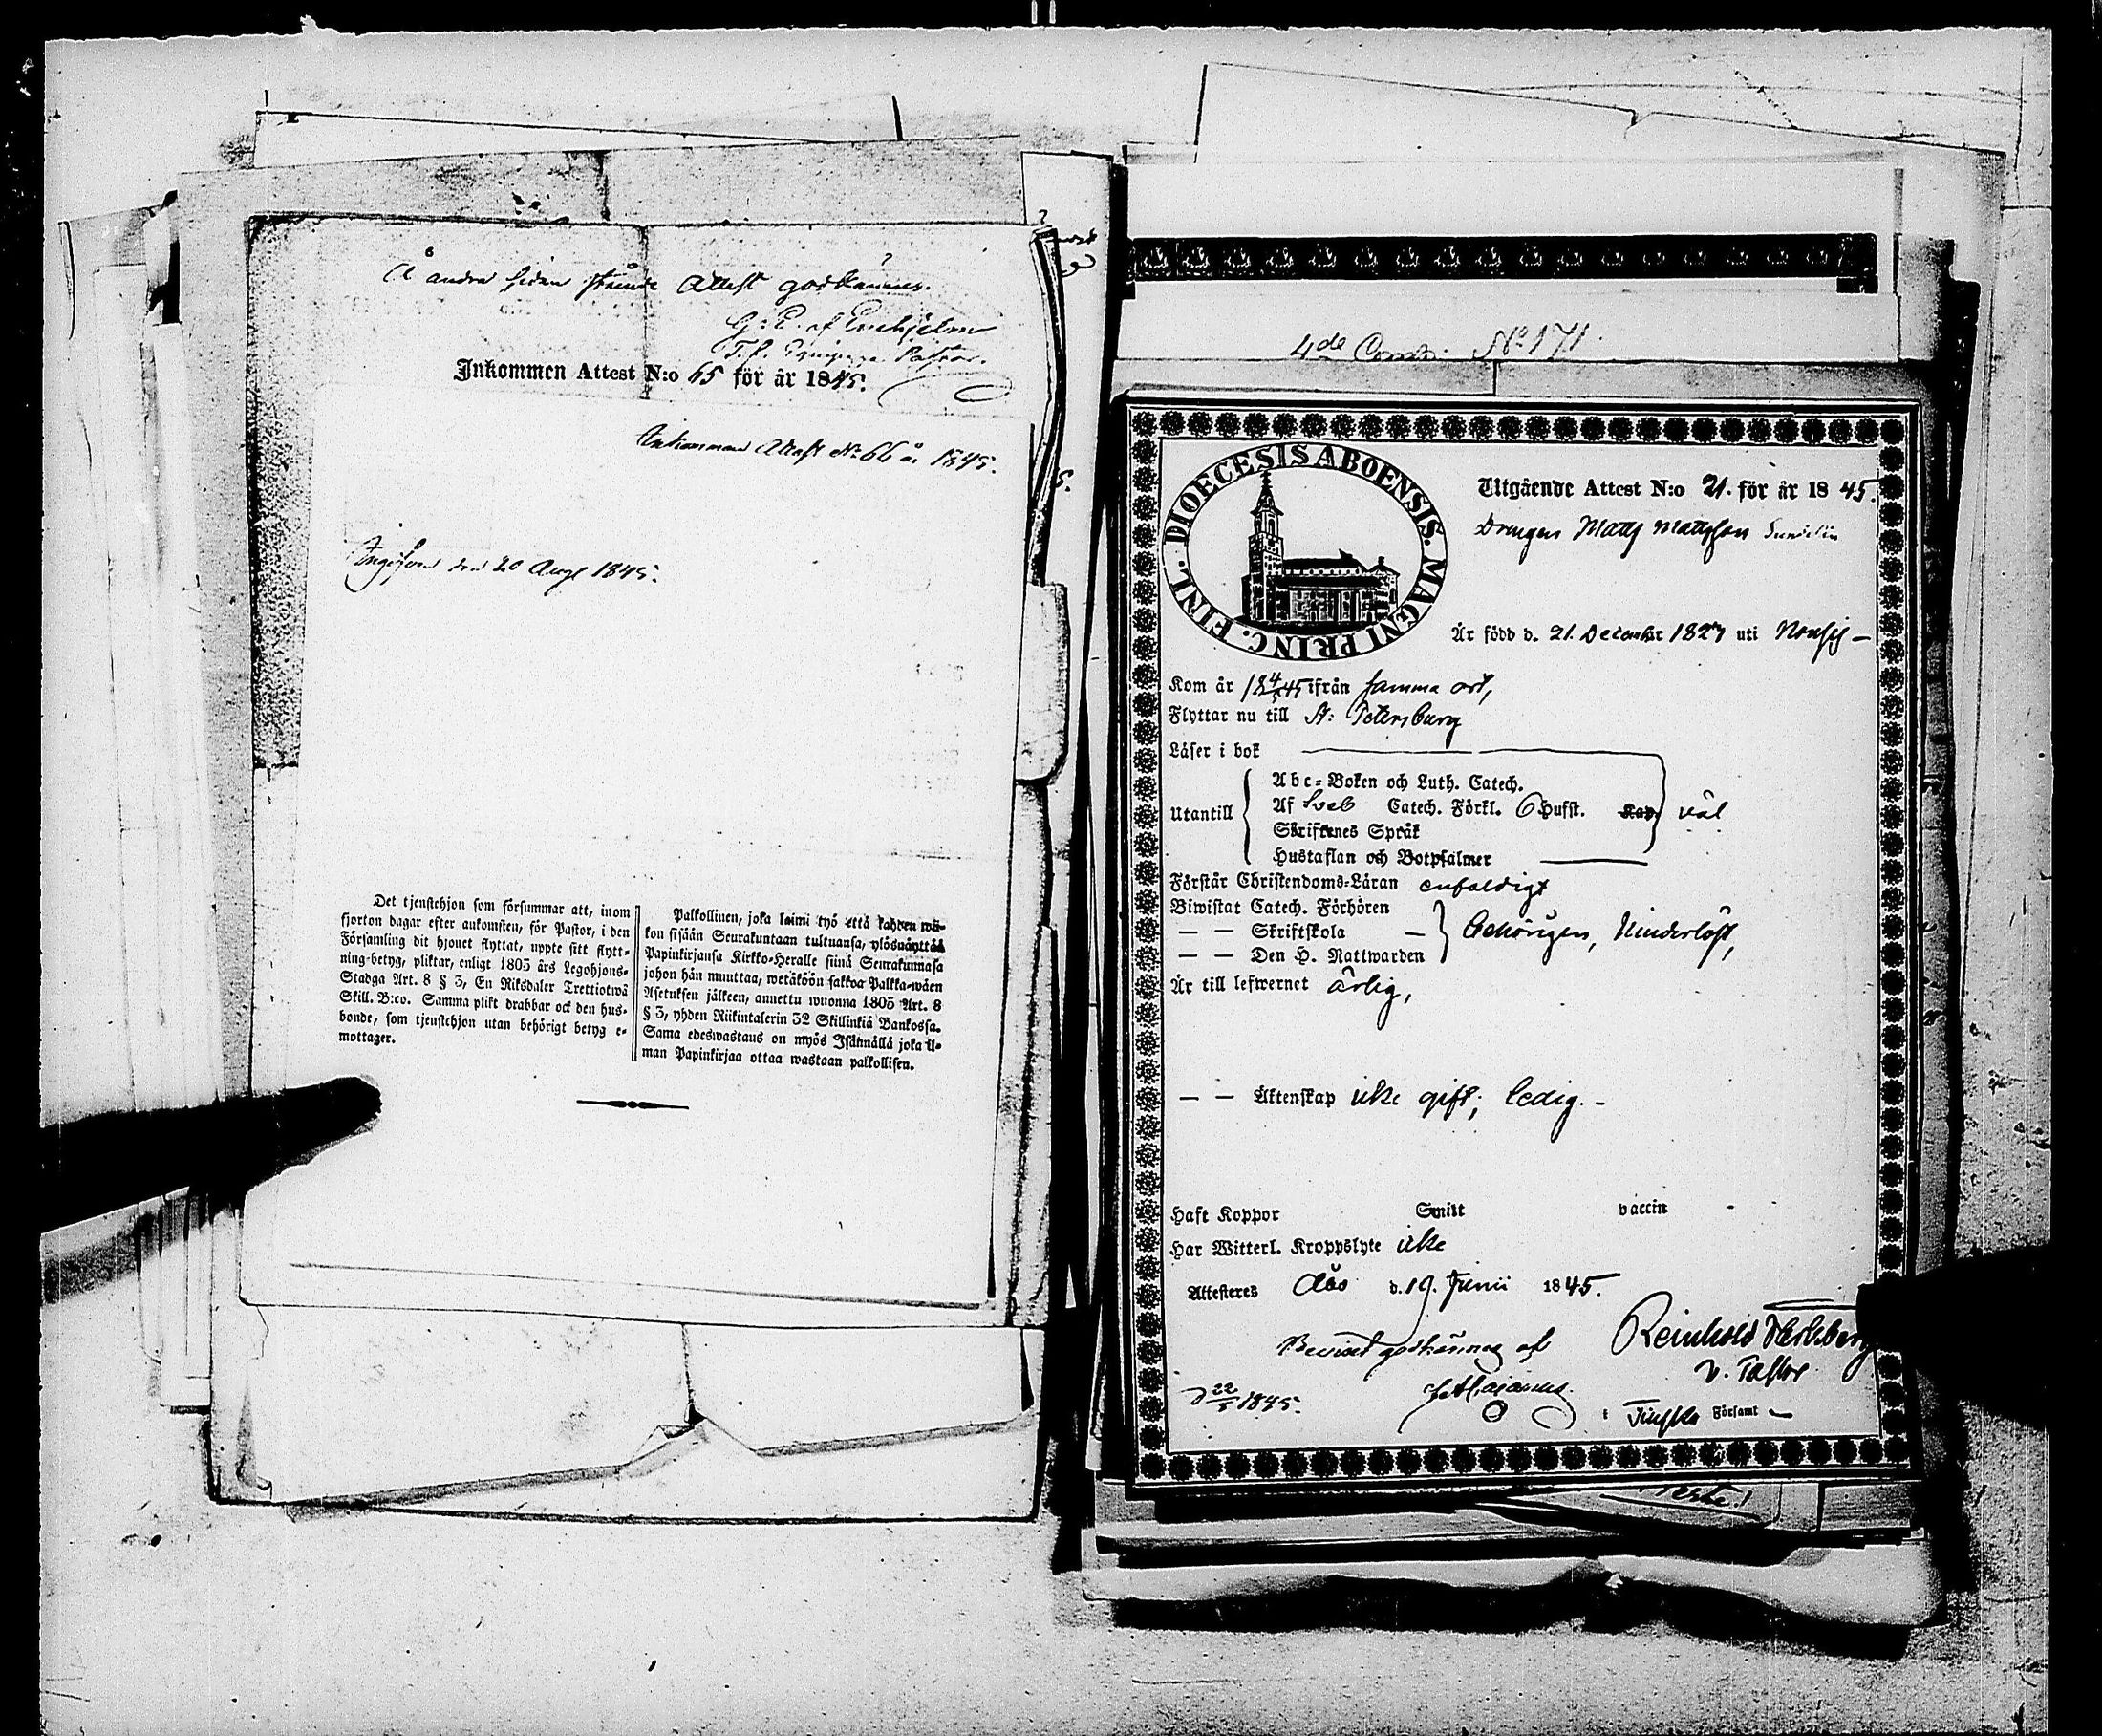 Å andra sidan stående Attest godkännes.
Inkommen Attest N:o 65 för år 1845.
Inkommen Attest No 66 år 1845.
Ingifven den 20 Aug 1845.
Det tjenstehjon som försummar att, inom
fjorton dagar efter ankomsten, för Pastor, i den
Församling dit hjonet flyttat, uppte sitt flytt-
ning-betyg, pliktar, enligt 1805 års Legohjons-
Stadga Art. 8 § 3, En Riksdaler Trettiotwå
Skill. B:co. Samma plikt drabbar ock den hus-
bonde, som tjenstehjon utan behörigt betyg e-
mottager.
Palkollinen, joka laimi lyö että kahden wii-
kon sisään Seurakuntaan tultuansa, ylösnäyttää
Papinkirjansa Kirkko-Heralle siinä Seurakunnasa
johon hän muuttaa, wetäköön sakkoa Palkka-wäen
Asetuksen jälkeen, annettu wuonna 1805 Art. 8
§ 3, yhden Riikintalerin 32 Skillinkiä Bankossa.
Sama edeswastaus on myös Isännällä joka il-
man Papinkirjaa ottaa wastaan palkollisen.
4de No 171
DIOECESIS ABOENSIS. MAGNI PRINC. FINL.
Utgående Attest N:o 21. för år 1845.
Drengen Matts Mattsson Sundelin
Är född d. 21. December 1827 uti Nousis –
Kom år 1844/45 ifrån samma ort,
Flyttar nu till St: Petersburg
Läser i bok
Abc-Boken och Luth. Catech.
Utantill Af Sveb Catech. Förkl. 6 Hufst. Kap. väl
Skriftenes Språk
Hustaflan och Botpsalmer
Förstår Christendoms-Läran enfaldigt
Biwistat Catech. Förhören
— — Skriftskola — behörigen, hinderlöst,
— — Den H. Nattwarden
Är till lefwernet ärlig,
— — Äktenskap icke gift; ledig. –
Haft Koppor Smitt vaccin
Har Witterl. Kroppslyte icke
Attesteres Åbo d. 19. Junii 1845.
Reinhold
v. Pastor
Beviset godkännes af
1845.
i Finska Församl